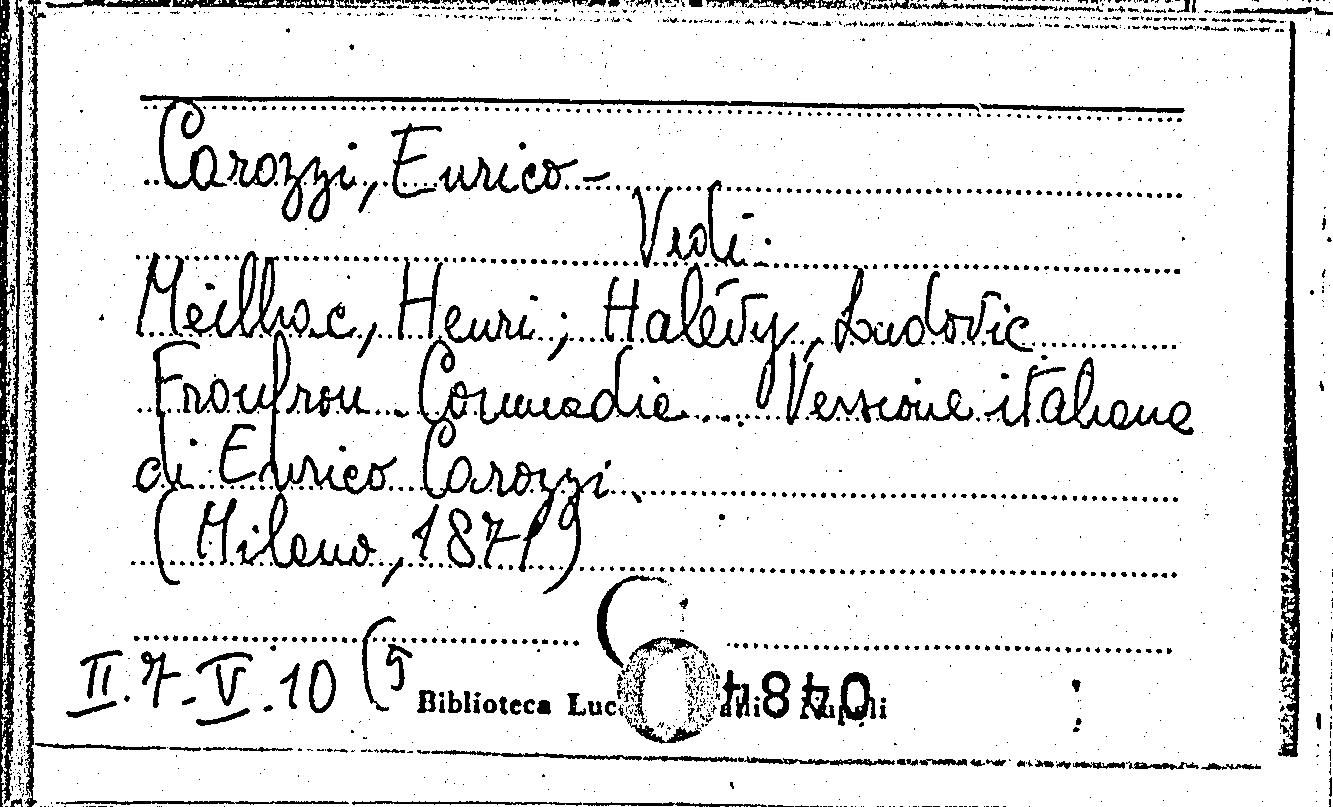 Carozzi, Enrico -
Vedi:
Meilhac, Henri; Halévy, Ludovic
Froufrou. Commedia... Versione italiana
di Enrico Carozzi.
(Milano, 1871)
II.7.V.10 (5
Biblioteca Luc